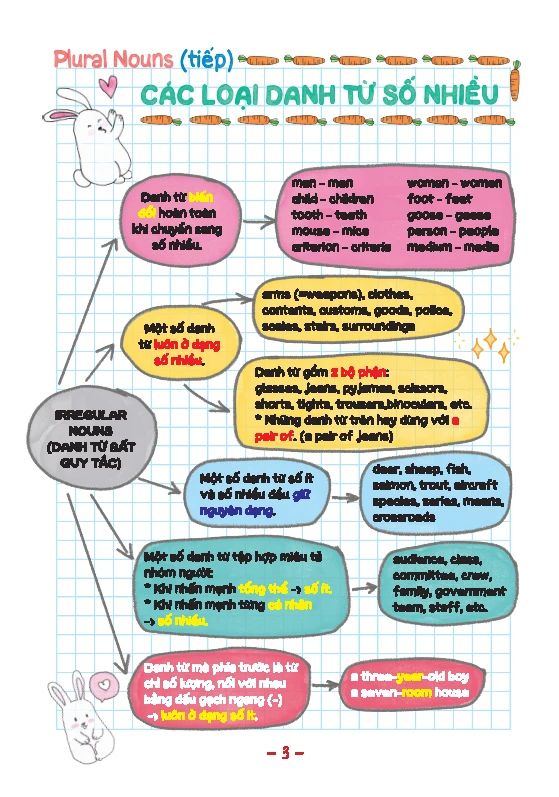 Plural Nouns (tiếp)
CÁC LOẠI DANH TỪ SỐ NHIỀU
Danh từ biến
đổi hoàn toàn
khi chuyển sang
số nhiều.
man – men
child – children
tooth – teeth
mouse – mice
criterion – criteria
woman – women
foot – feet
goose – geese
person – people
medium – media
Một số danh
từ luôn ở dạng
số nhiều.
arms (=weapons), clothes,
contents, customs, goods, police,
scales, stairs, surroundings
Danh từ gồm 2 bộ phận:
glasses, jeans, pyjamas, scissors,
shorts, tights, trousers,binoculars, etc.
* Những danh từ trên hay dùng với a
pair of. (a pair of jeans)
IRREGULAR
NOUNS
(DANH TỪ BẤT
QUY TẮC)
Một số danh từ số ít
và số nhiều đều giữ
nguyên dạng.
deer, sheep, fish,
salmon, trout, aircraft
species, series, means,
crossroads
Một số danh từ tập hợp miêu tả
nhóm người:
* Khi nhấn mạnh tổng thể -> số ít.
* Khi nhấn mạnh từng cá nhân
-> số nhiều.
audience, class,
committee, crew,
family, government
team, staff, etc.
Danh từ mà phía trước là từ
chỉ số lượng, nối với nhau
bằng dấu gạch ngang (-)
-> luôn ở dạng số ít.
a three-year-old boy
a seven-room house
– 3 –